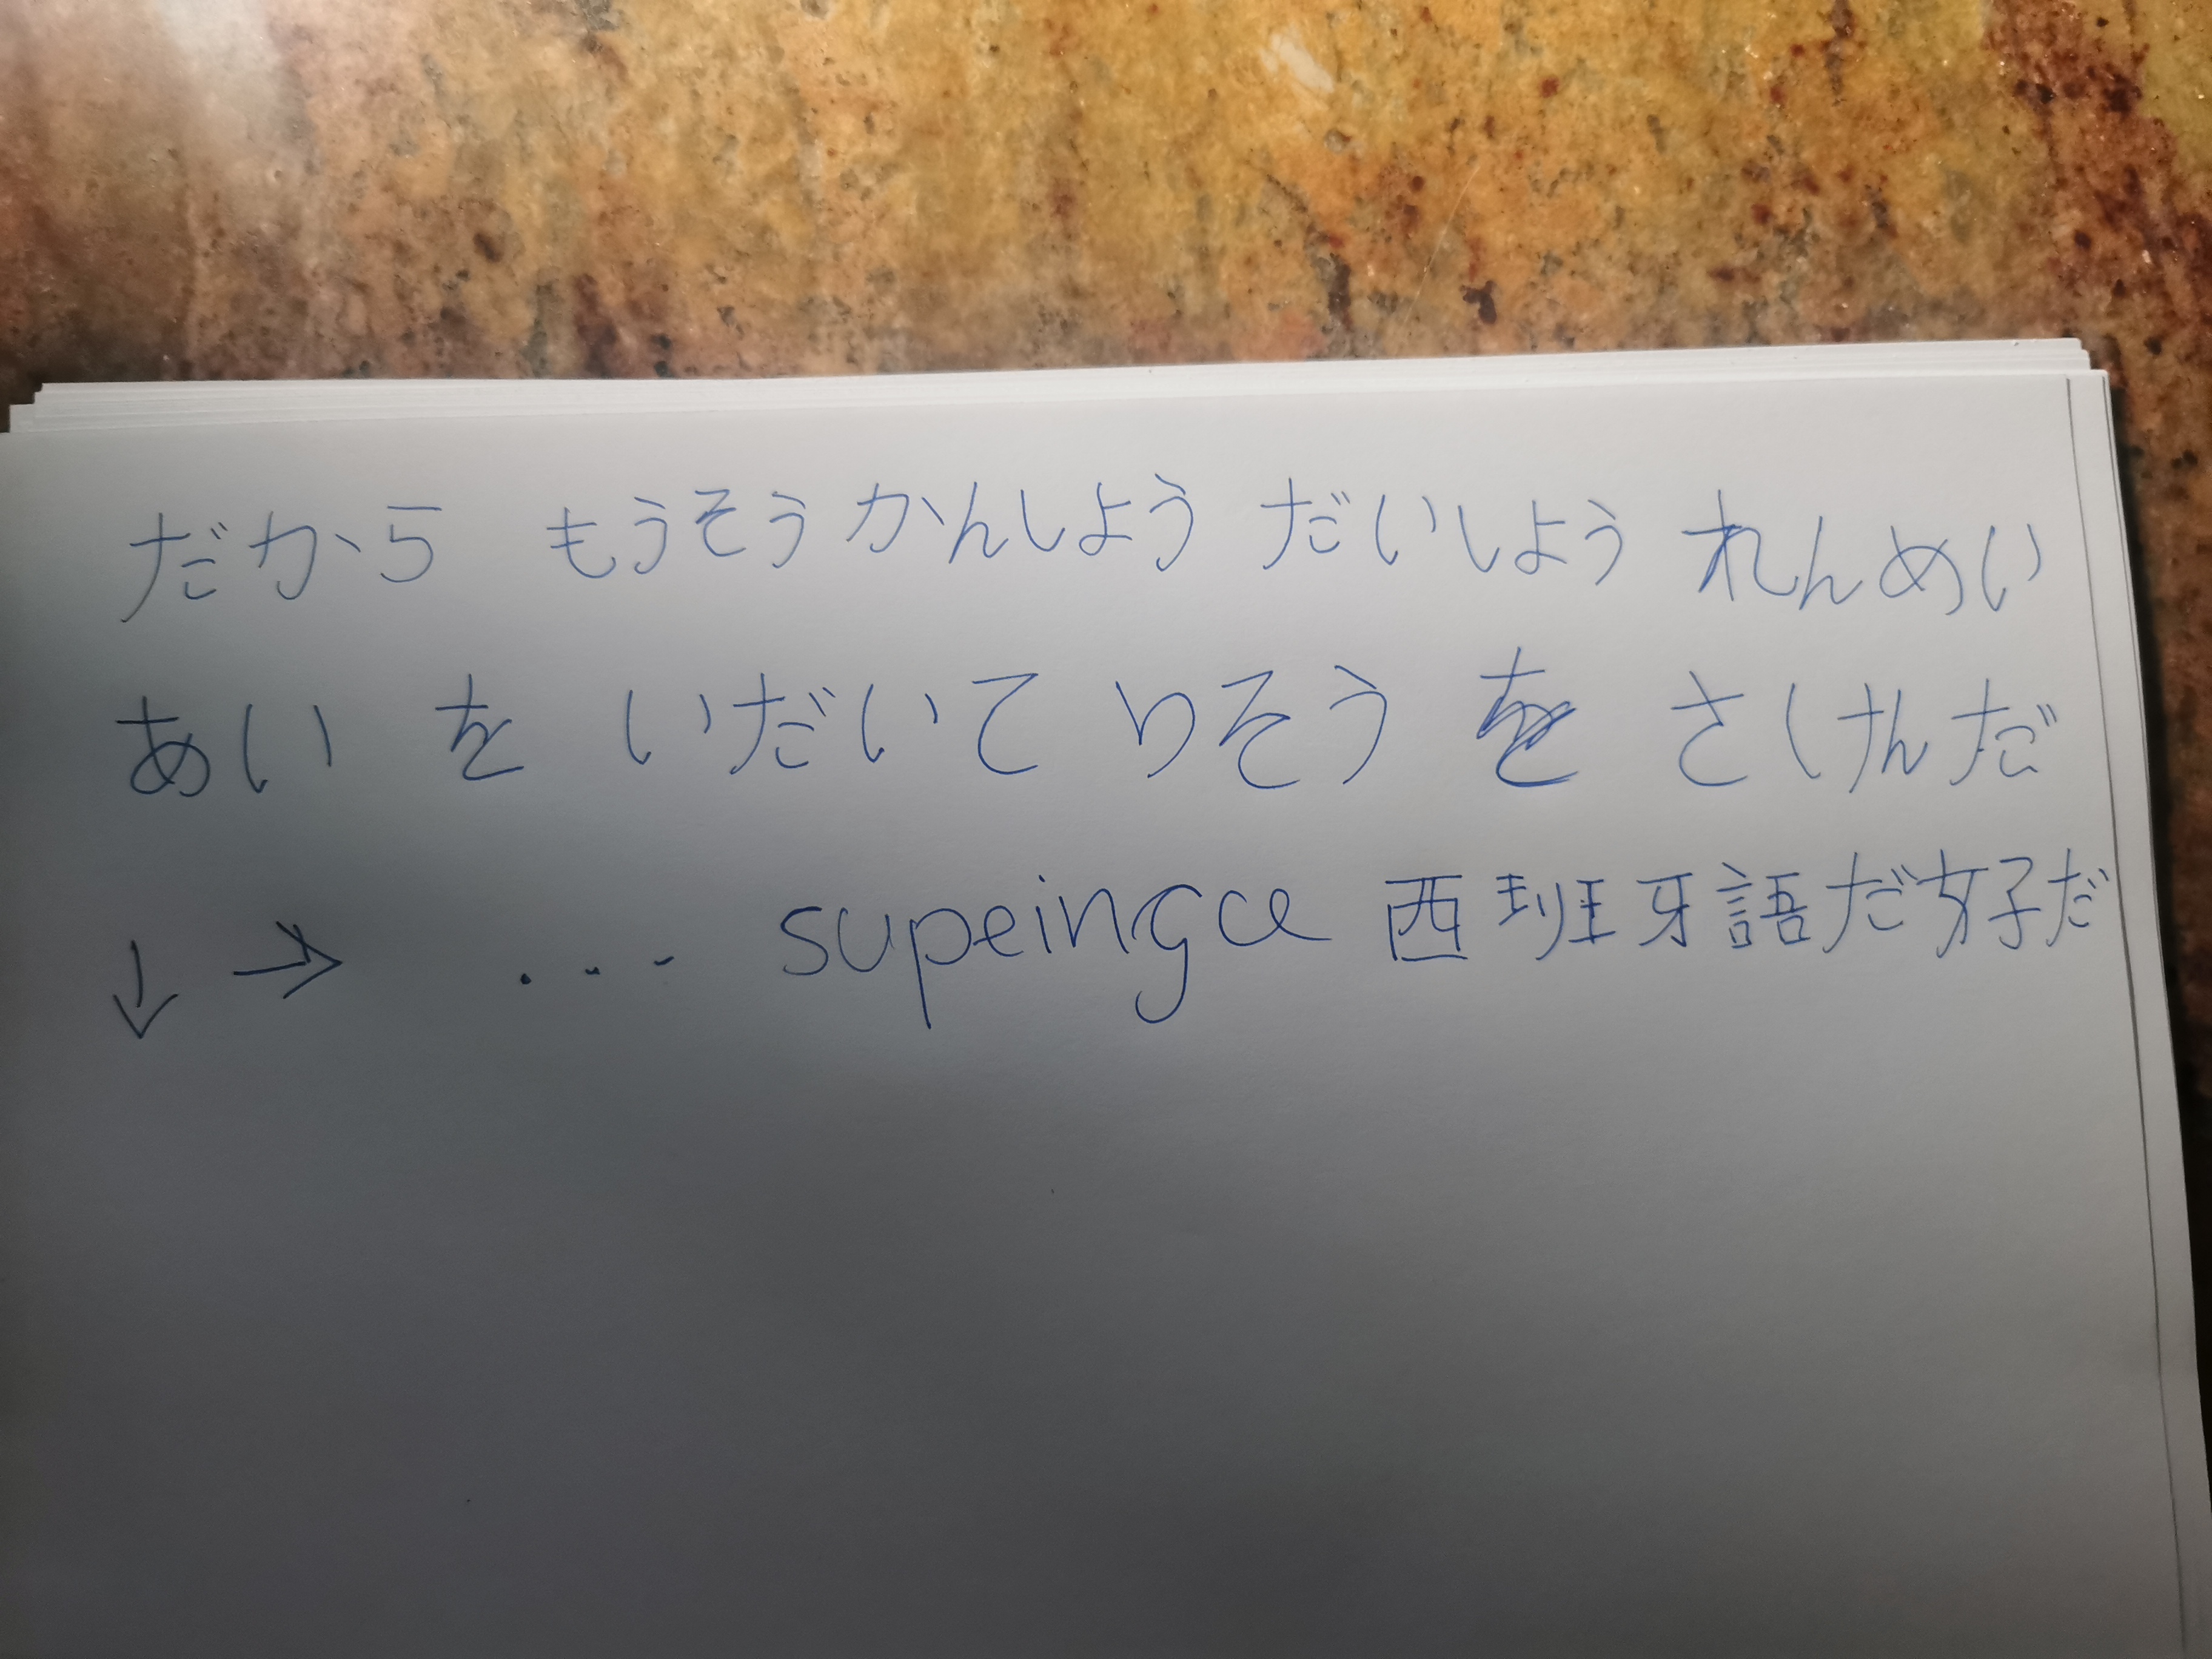 だから もうそうかんしよう だいしよう れんめい
あい を いだいて りそう を さしけんだ
↓ → ... supeingce 西班牙語だ好だ